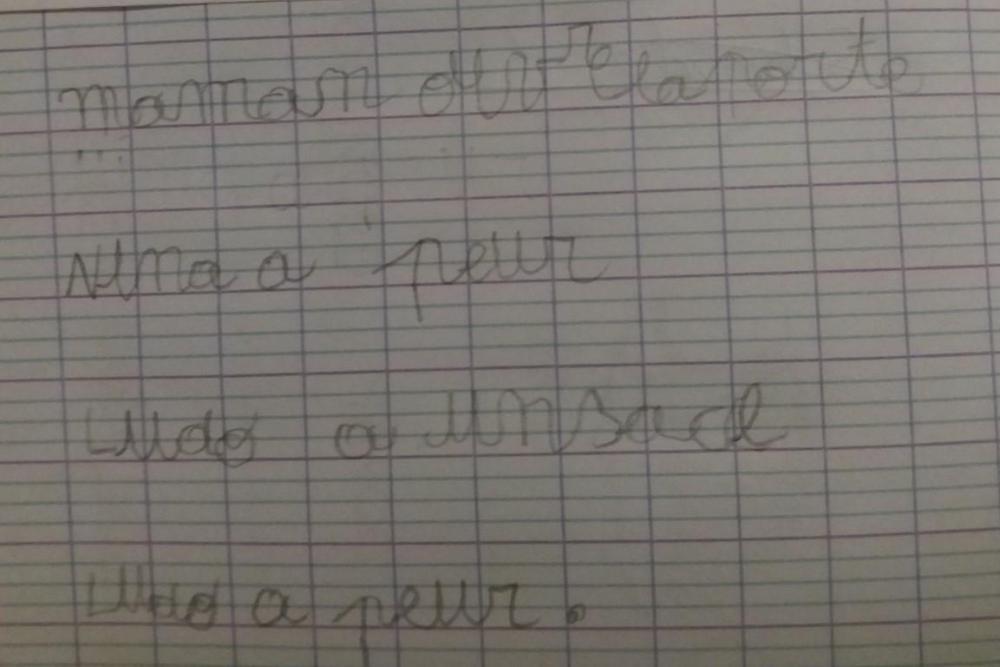 maman ouvre la porte
Nina a peur
Ludo a un sac
Ludo a peur.